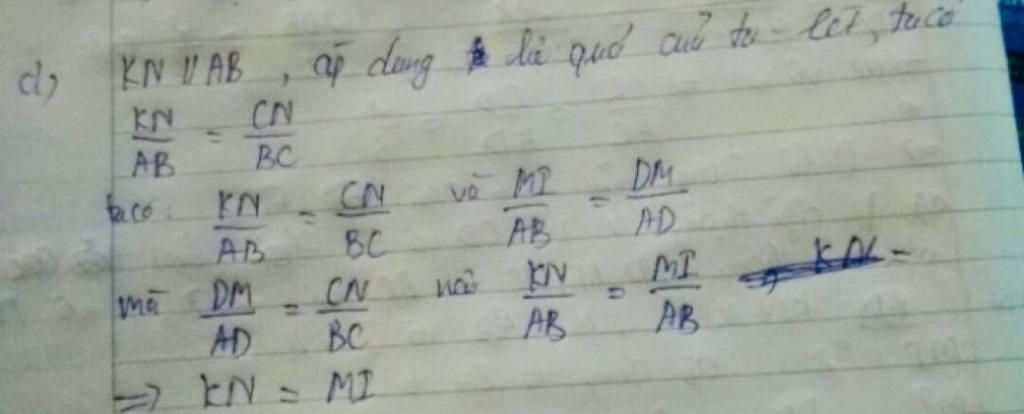 d) KN // AB, áp dụng hệ quả của ta-let, ta có
KN/AB = CN/BC
ta có: KN/AB = CN/BC và MI/AB = DM/AD
mà DM/AD = CN/BC nên KN/AB = MI/AB
=> KN = MI